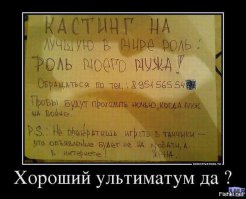 КАСТИНГ НА
ЛУЧШУЮ В МИРЕ РОЛЬ:
РОЛЬ МОЕГО МУЖА!
Обращаться по тел.: 8954565
Пробы будут проходить ночью, когда муж
на войне.
P.S.: Не прекратишь играть в танчики –
это объявление будет не на кровати, а
в интернете!
Хороший ультиматум да ?
Fishki.net